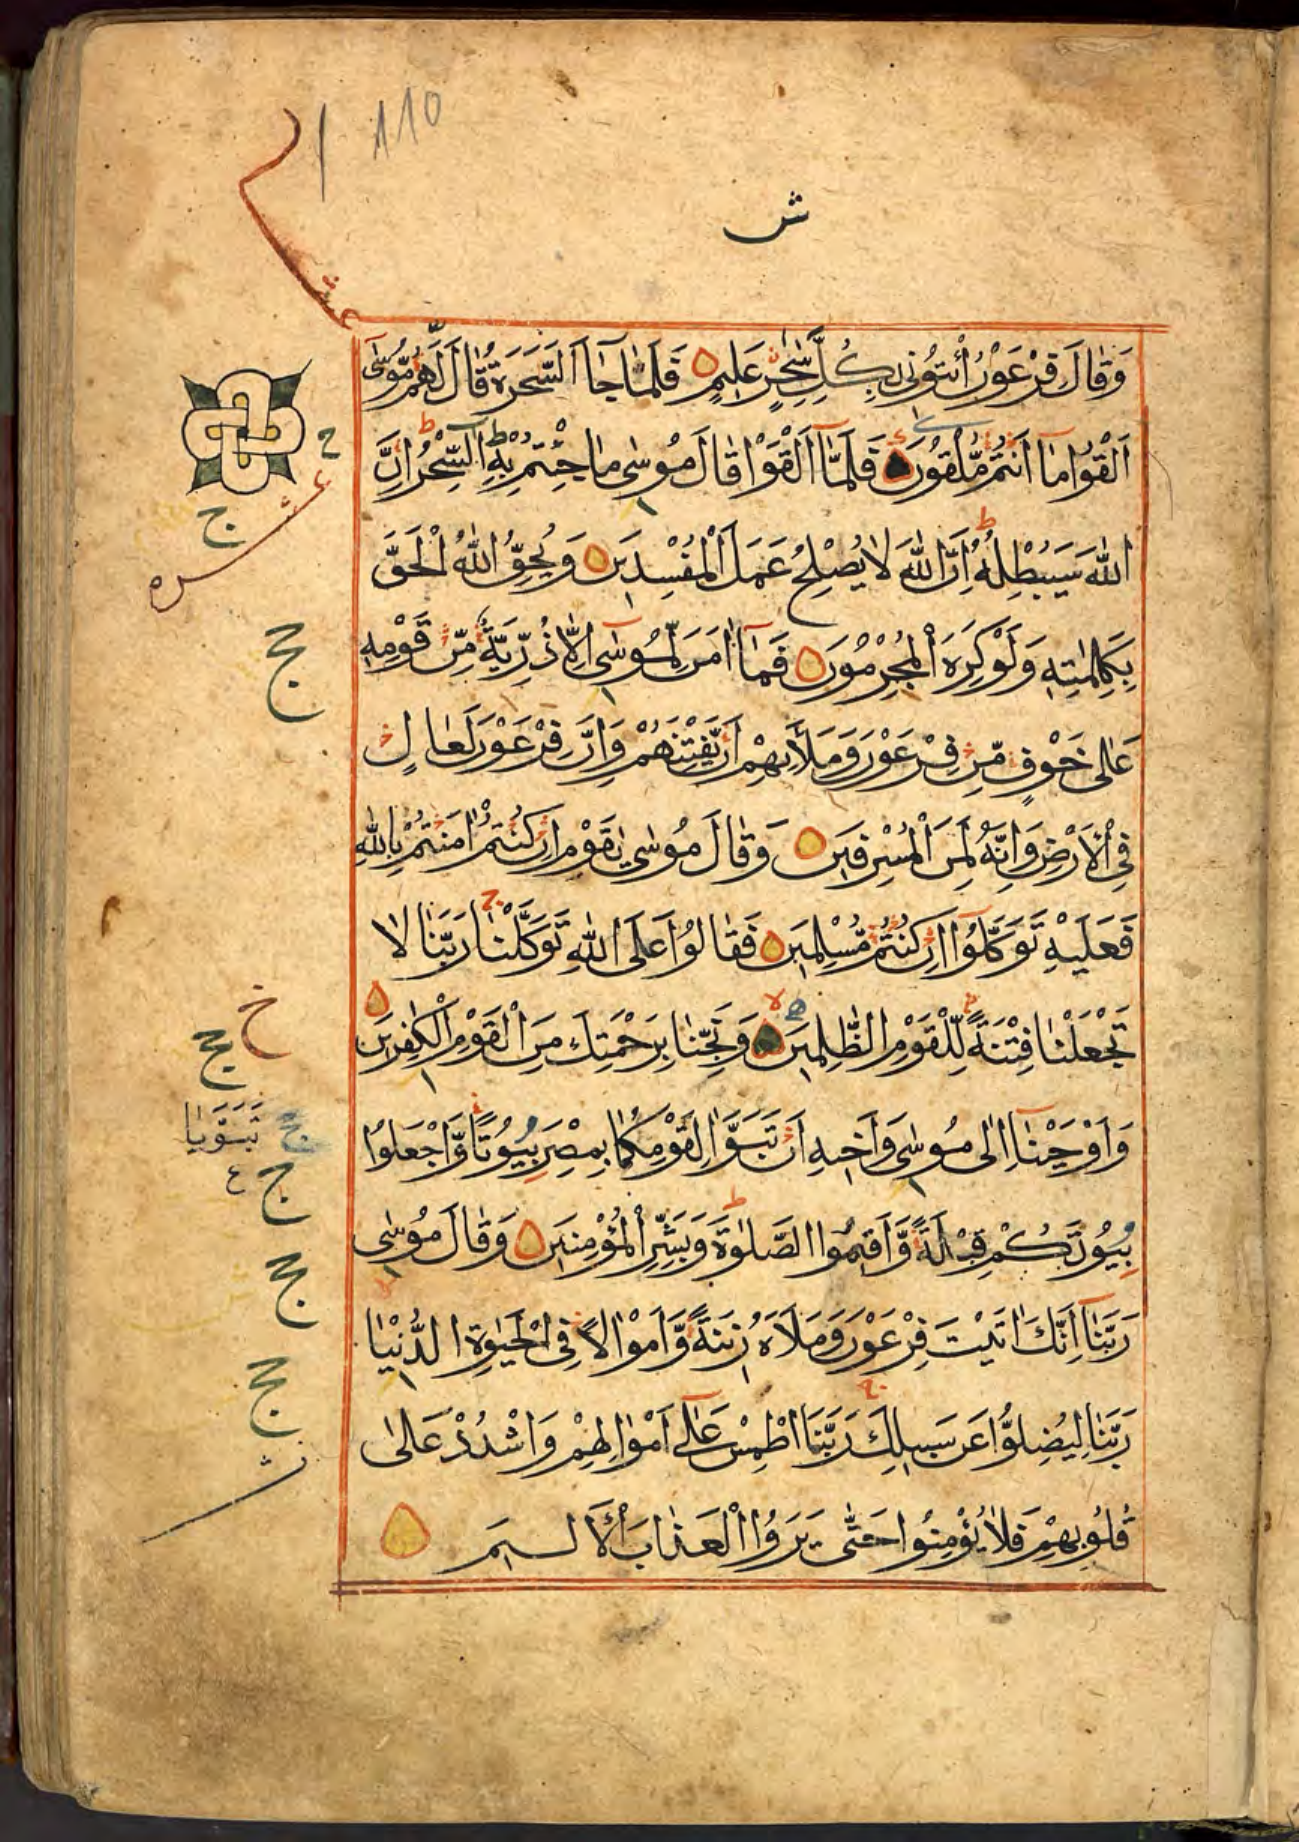 110
ش
عشر
وَقَالَ فِرْعَوْنُ ائْتُونِي بِكُلِّ سَٰحِرٍ عَلِيمٍ فَلَمَّا جَآءَ السَّحَرَةُ قَالَ لَهُمْ مُّوسَىٰٓ
اَلْقُوا مَآ اَنْتُمْ مُّلْقُونَ فَلَمَّآ اَلْقَوْا قَالَ مُوسٰى مَا جِئْتُمْ بِهِ السِّحْرُ اِنَّ
اللّٰهَ سَيُبْطِلُهُ اِنَّ اللّٰهَ لَا يُصْلِحُ عَمَلَ الْمُفْسِدِينَ وَيُحِقُّ اللّٰهُ الْحَقَّ
بِكَلِمٰتِهِ وَلَوْ كَرِهَ الْمُجْرِمُونَ فَمَآ اٰمَنَ لِمُوسٰىٓ اِلَّا ذُرِّيَّةٌ مِّنْ قَوْمِهِ
عَلٰى خَوْفٍ مِّنْ فِرْعَوْنَ وَمَلَأِيهِمْ اَنْ يَّفْتِنَهُمْ وَاِنَّ فِرْعَوْنَ لَعَالٍ
فِي الْاَرْضِ وَاِنَّهُ لَمِنَ الْمُسْرِفِينَ وَقَالَ مُوسٰى يٰقَوْمِ اِنْ كُنْتُمْ اٰمَنْتُمْ بِاللّٰهِ
فَعَلَيْهِ تَوَكَّلُوٓا اِنْ كُنْتُمْ مُّسْلِمِينَ فَقَالُوا عَلَى اللّٰهِ تَوَكَّلْنَا رَبَّنَا لَا
تَجْعَلْنَا فِتْنَةً لِّلْقَوْمِ الظّٰلِمِينَ وَنَجِّنَا بِرَحْمَتِكَ مِنَ الْقَوْمِ الْكٰفِرِينَ
وَاَوْحَيْنَآ اِلٰى مُوسٰى وَاَخِيهِ اَنْ تَبَوَّاٰ لِقَوْمِكُمَا بِمِصْرَ بُيُوتًا وَّاجْعَلُوا
بُيُوتَكُمْ قِبْلَةً وَّاَقِيمُوا الصَّلٰوةَ وَبَشِّرِ الْمُؤْمِنِينَ وَقَالَ مُوسٰى
رَبَّنَآ اِنَّكَ اٰتَيْتَ فِرْعَوْنَ وَمَلَاَهُ زِينَةً وَّاَمْوَالًا فِي الْحَيٰوةِ الدُّنْيَا
رَبَّنَا لِيُضِلُّوا عَنْ سَبِيلِكَ رَبَّنَا اطْمِسْ عَلٰٓى اَمْوَالِهِمْ وَاشْدُدْ عَلٰى
قُلُوبِهِمْ فَلَا يُؤْمِنُوا حَتّٰى يَرَوُا الْعَذَابَ الْاَلِيمَ
ح
ج
عشره
حج
خ
حج
تَبَوَّيَا
ج
ع
حج
حج